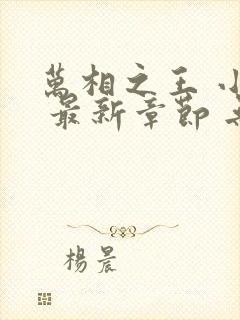 萬相之王
最新章節
楊晨